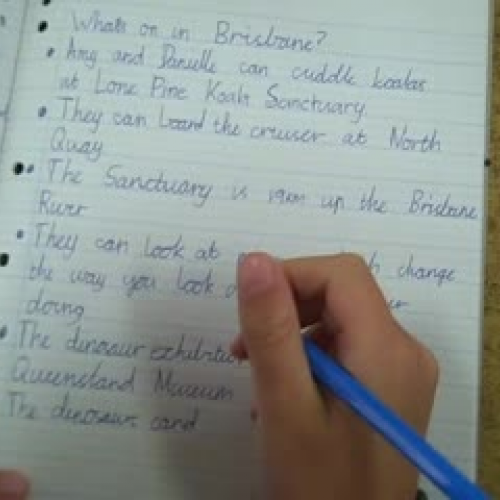 Whats on in Brisbane?
Amy and Danielle can cuddle koalas
at Lone Pine Koala Sanctuary
They can board the cruiser at North
Quay
The Sanctuary is 19km up the Brisbane
River
They can look at change
the way you look
doing
The dinosaur exhibition
Queensland Museum
The dinosaurs cand